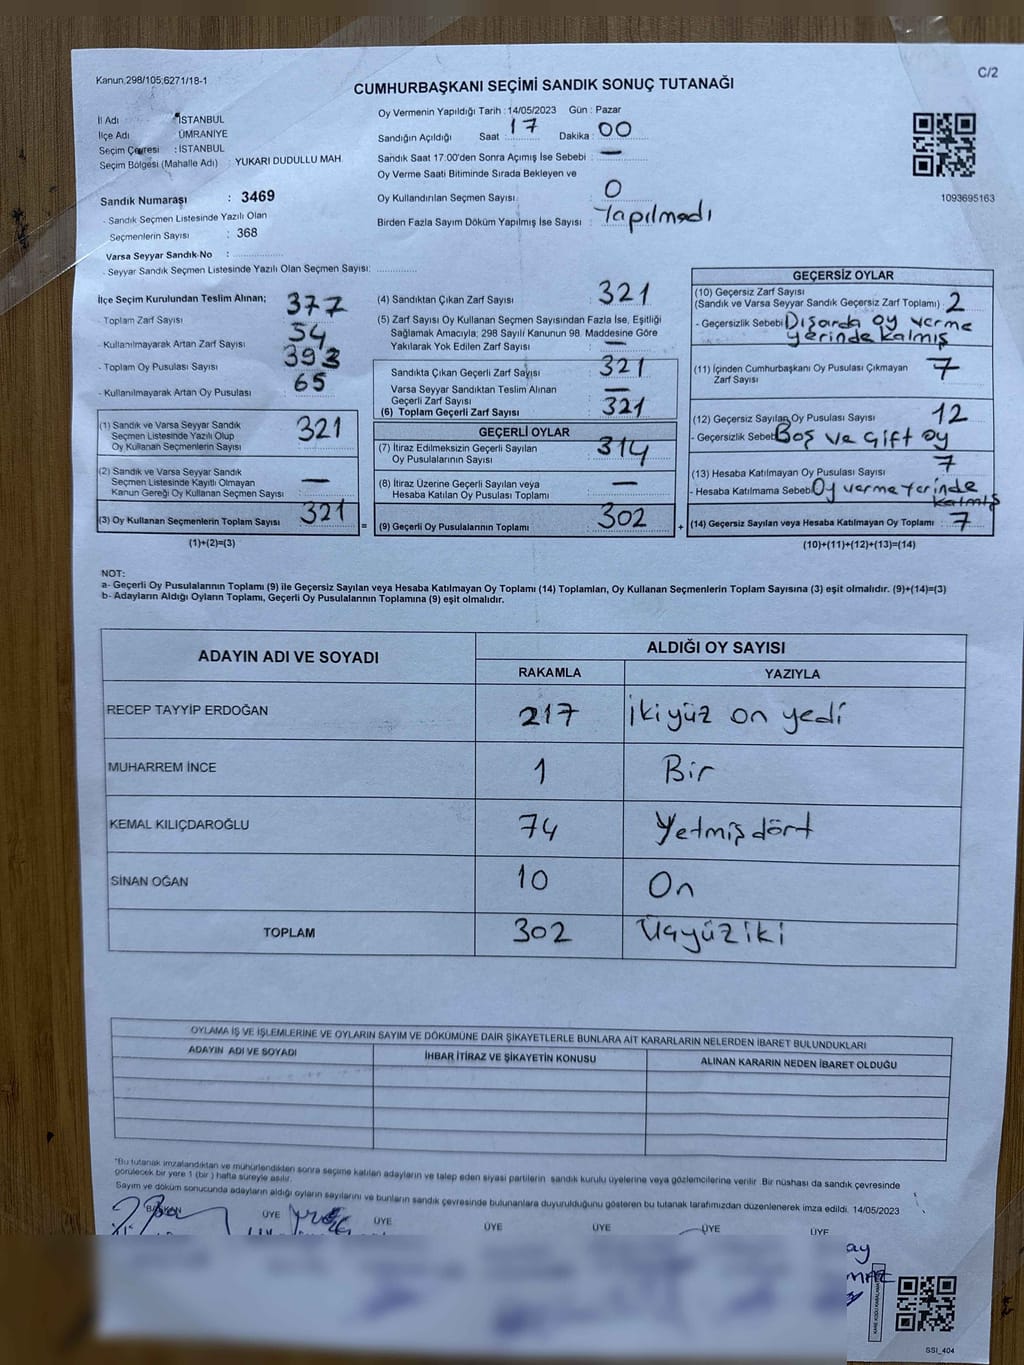 Kanun:298/105;6271/18-1
C/2
CUMHURBAŞKANI SEÇİMİ SANDIK SONUÇ TUTANAĞI
İl Adı : İSTANBUL
İlçe Adı : ÜMRANİYE
Seçim Çevresi : İSTANBUL
Seçim Bölgesi (Mahalle Adı) : YUKARI DUDULLU MAH.
Sandık Numarası : 3469
- Sandık Seçmen Listesinde Yazılı Olan
Seçmenlerin Sayısı : 368
Varsa Seyyar Sandık No :
- Seyyar Sandık Seçmen Listesinde Yazılı Olan Seçmen Sayısı:
Oy Vermenin Yapıldığı Tarih : 14/05/2023 Gün : Pazar
Sandığın Açıldığı Saat : 17 Dakika : 00
Sandık Saat 17:00'den Sonra Açımış İse Sebebi : —
Oy Verme Saati Bitiminde Sırada Bekleyen ve
Oy Kullandırılan Seçmen Sayısı : 0
Birden Fazla Sayım Döküm Yapılmış İse Sayısı : Yapılmadı
1093695163
İlçe Seçim Kurulundan Teslim Alınan;
- Toplam Zarf Sayısı : 377
- Kullanılmayarak Artan Zarf Sayısı : 54
- Toplam Oy Pusulası Sayısı : 393
- Kullanılmayarak Artan Oy Pusulası : 65
(1) Sandık ve Varsa Seyyar Sandık
Seçmen Listesinde Yazılı Olup
Oy Kullanan Seçmenlerin Sayısı : 321
(2) Sandık ve Varsa Seyyar Sandık
Seçmen Listesinde Kayıtlı Olmayan
Kanun Gereği Oy Kullanan Seçmen Sayısı : —
(3) Oy Kullanan Seçmenlerin Toplam Sayısı : 321
(1)+(2)=(3)
(4) Sandıktan Çıkan Zarf Sayısı : 321
(5) Zarf Sayısı Oy Kullanan Seçmen Sayısından Fazla İse, Eşitliği
Sağlamak Amacıyla; 298 Sayılı Kanunun 98. Maddesine Göre
Yakılarak Yok Edilen Zarf Sayısı : —
Sandıkta Çıkan Geçerli Zarf Sayısı : 321
Varsa Seyyar Sandıktan Teslim Alınan
Geçerli Zarf Sayısı : —
(6) Toplam Geçerli Zarf Sayısı : 321
GEÇERLİ OYLAR
(7) İtiraz Edilmeksizin Geçerli Sayılan
Oy Pusulalarının Sayısı : 314
(8) İtiraz Üzerine Geçerli Sayılan veya
Hesaba Katılan Oy Pusulası Toplamı : —
= (9) Geçerli Oy Pusulalarının Toplamı : 302 +
GEÇERSİZ OYLAR
(10) Geçersiz Zarf Sayısı
(Sandık ve Varsa Seyyar Sandık Geçersiz Zarf Toplamı) : 2
- Geçersizlik Sebebi Dışarda oy verme
yerinde kalmış
(11) İçinden Cumhurbaşkanı Oy Pusulası Çıkmayan
Zarf Sayısı : 7
(12) Geçersiz Sayılan Oy Pusulası Sayısı : 12
- Geçersizlik Sebebi Boş ve Çift oy
(13) Hesaba Katılmayan Oy Pusulası Sayısı : 7
- Hesaba Katılmama Sebebi Oy verme yerinde
kalmış
(14) Geçersiz Sayılan veya Hesaba Katılmayan Oy Toplamı : 7
(10)+(11)+(12)+(13)=(14)
NOT:
a- Geçerli Oy Pusulalarının Toplamı (9) ile Geçersiz Sayılan veya Hesaba Katılmayan Oy Toplamı (14) Toplamları, Oy Kullanan Seçmenlerin Toplam Sayısına (3) eşit olmalıdır. (9)+(14)=(3)
b- Adayların Aldığı Oyların Toplamı, Geçerli Oy Pusulalarının Toplamına (9) eşit olmalıdır.
ADAYIN ADI VE SOYADI
ALDIĞI OY SAYISI
RAKAMLA YAZIYLA
RECEP TAYYİP ERDOĞAN 217 İkiyüz on yedi
MUHARREM İNCE 1 Bir
KEMAL KILIÇDAROĞLU 74 Yetmiş dört
SİNAN OĞAN 10 On
TOPLAM 302 Üçyüziki
OYLAMA İŞ VE İŞLEMLERİNE VE OYLARIN SAYIM VE DÖKÜMÜNE DAİR ŞİKAYETLERLE BUNLARA AİT KARARLARIN NELERDEN İBARET BULUNDUKLARI
ADAYIN ADI VE SOYADI İHBAR İTİRAZ VE ŞİKAYETİN KONUSU ALINAN KARARIN NEDEN İBARET OLDUĞU
"Bu tutanak imzalandıktan ve mühürlendikten sonra seçime katılan adayların ve talep eden siyasi partilerin sandık kurulu üyelerine veya gözlemcilerine verilir. Bir nüshası da sandık çevresinde
görülecek bir yere 1 (bir) hafta süreyle asılır.
Sayım ve döküm sonucunda adayların aldığı oyların sayılarını ve bunların sandık çevresinde bulunanlara duyurulduğunu gösteren bu tutanak tarafımızdan düzenlenerek imza edildi. 14/05/2023
BAŞKAN ÜYE ÜYE ÜYE ÜYE ÜYE ÜYE
SSI_404